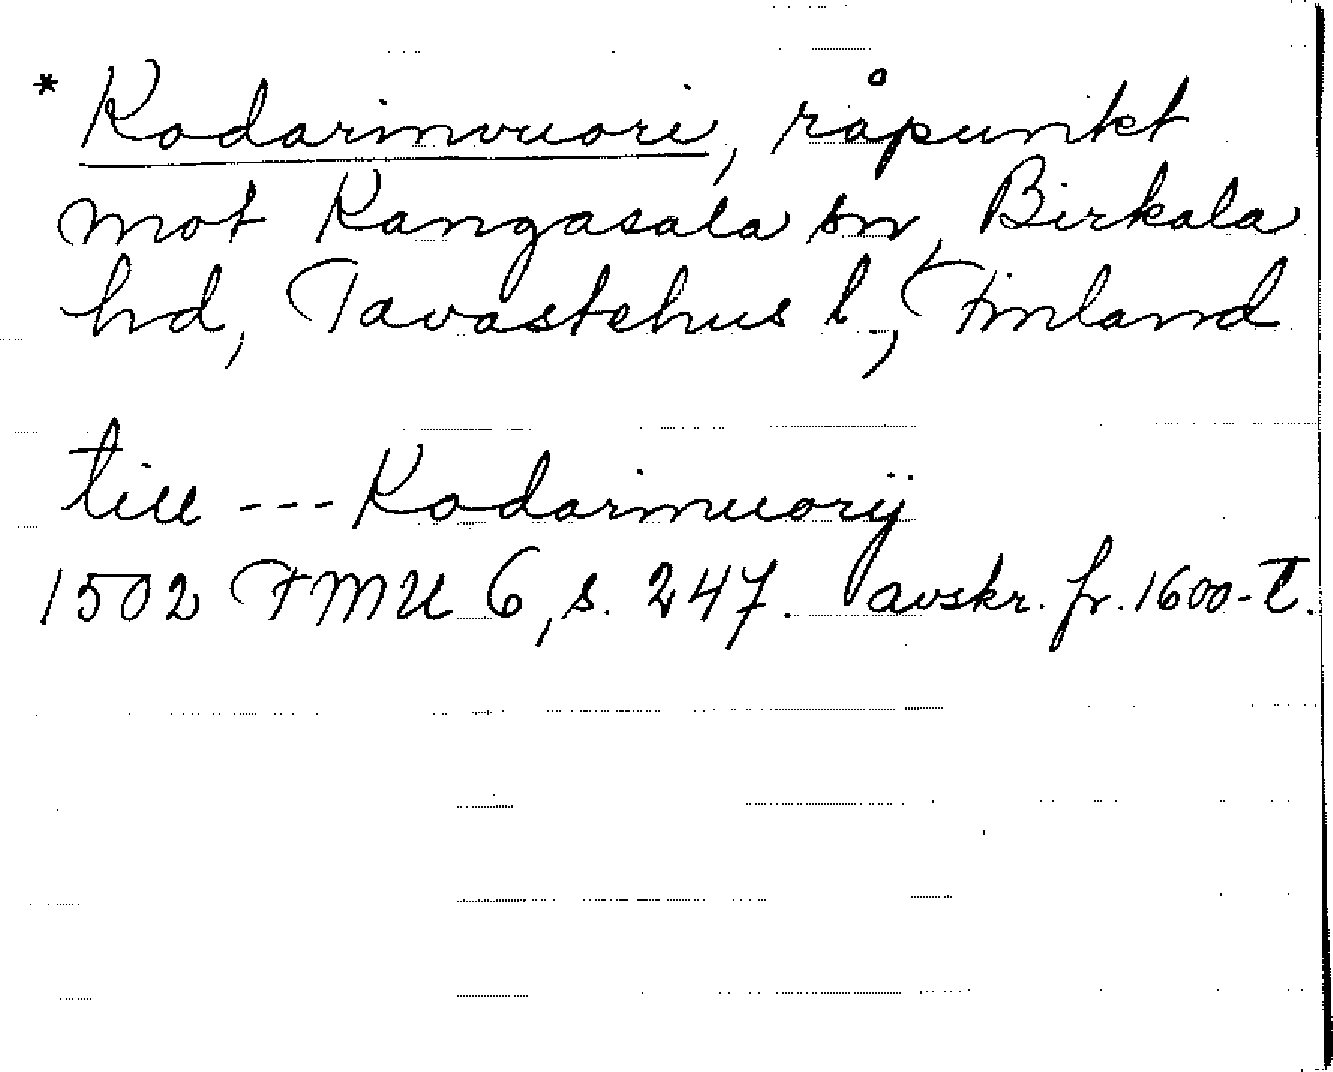 * Kodarinvuori, råpunkt
mot Kangasala sn, Birkala
hd, Tavastehus l, Finland
till --- Kodarinuorij
1502 FMU 6, s. 247. avskr. fr. 1600-t.